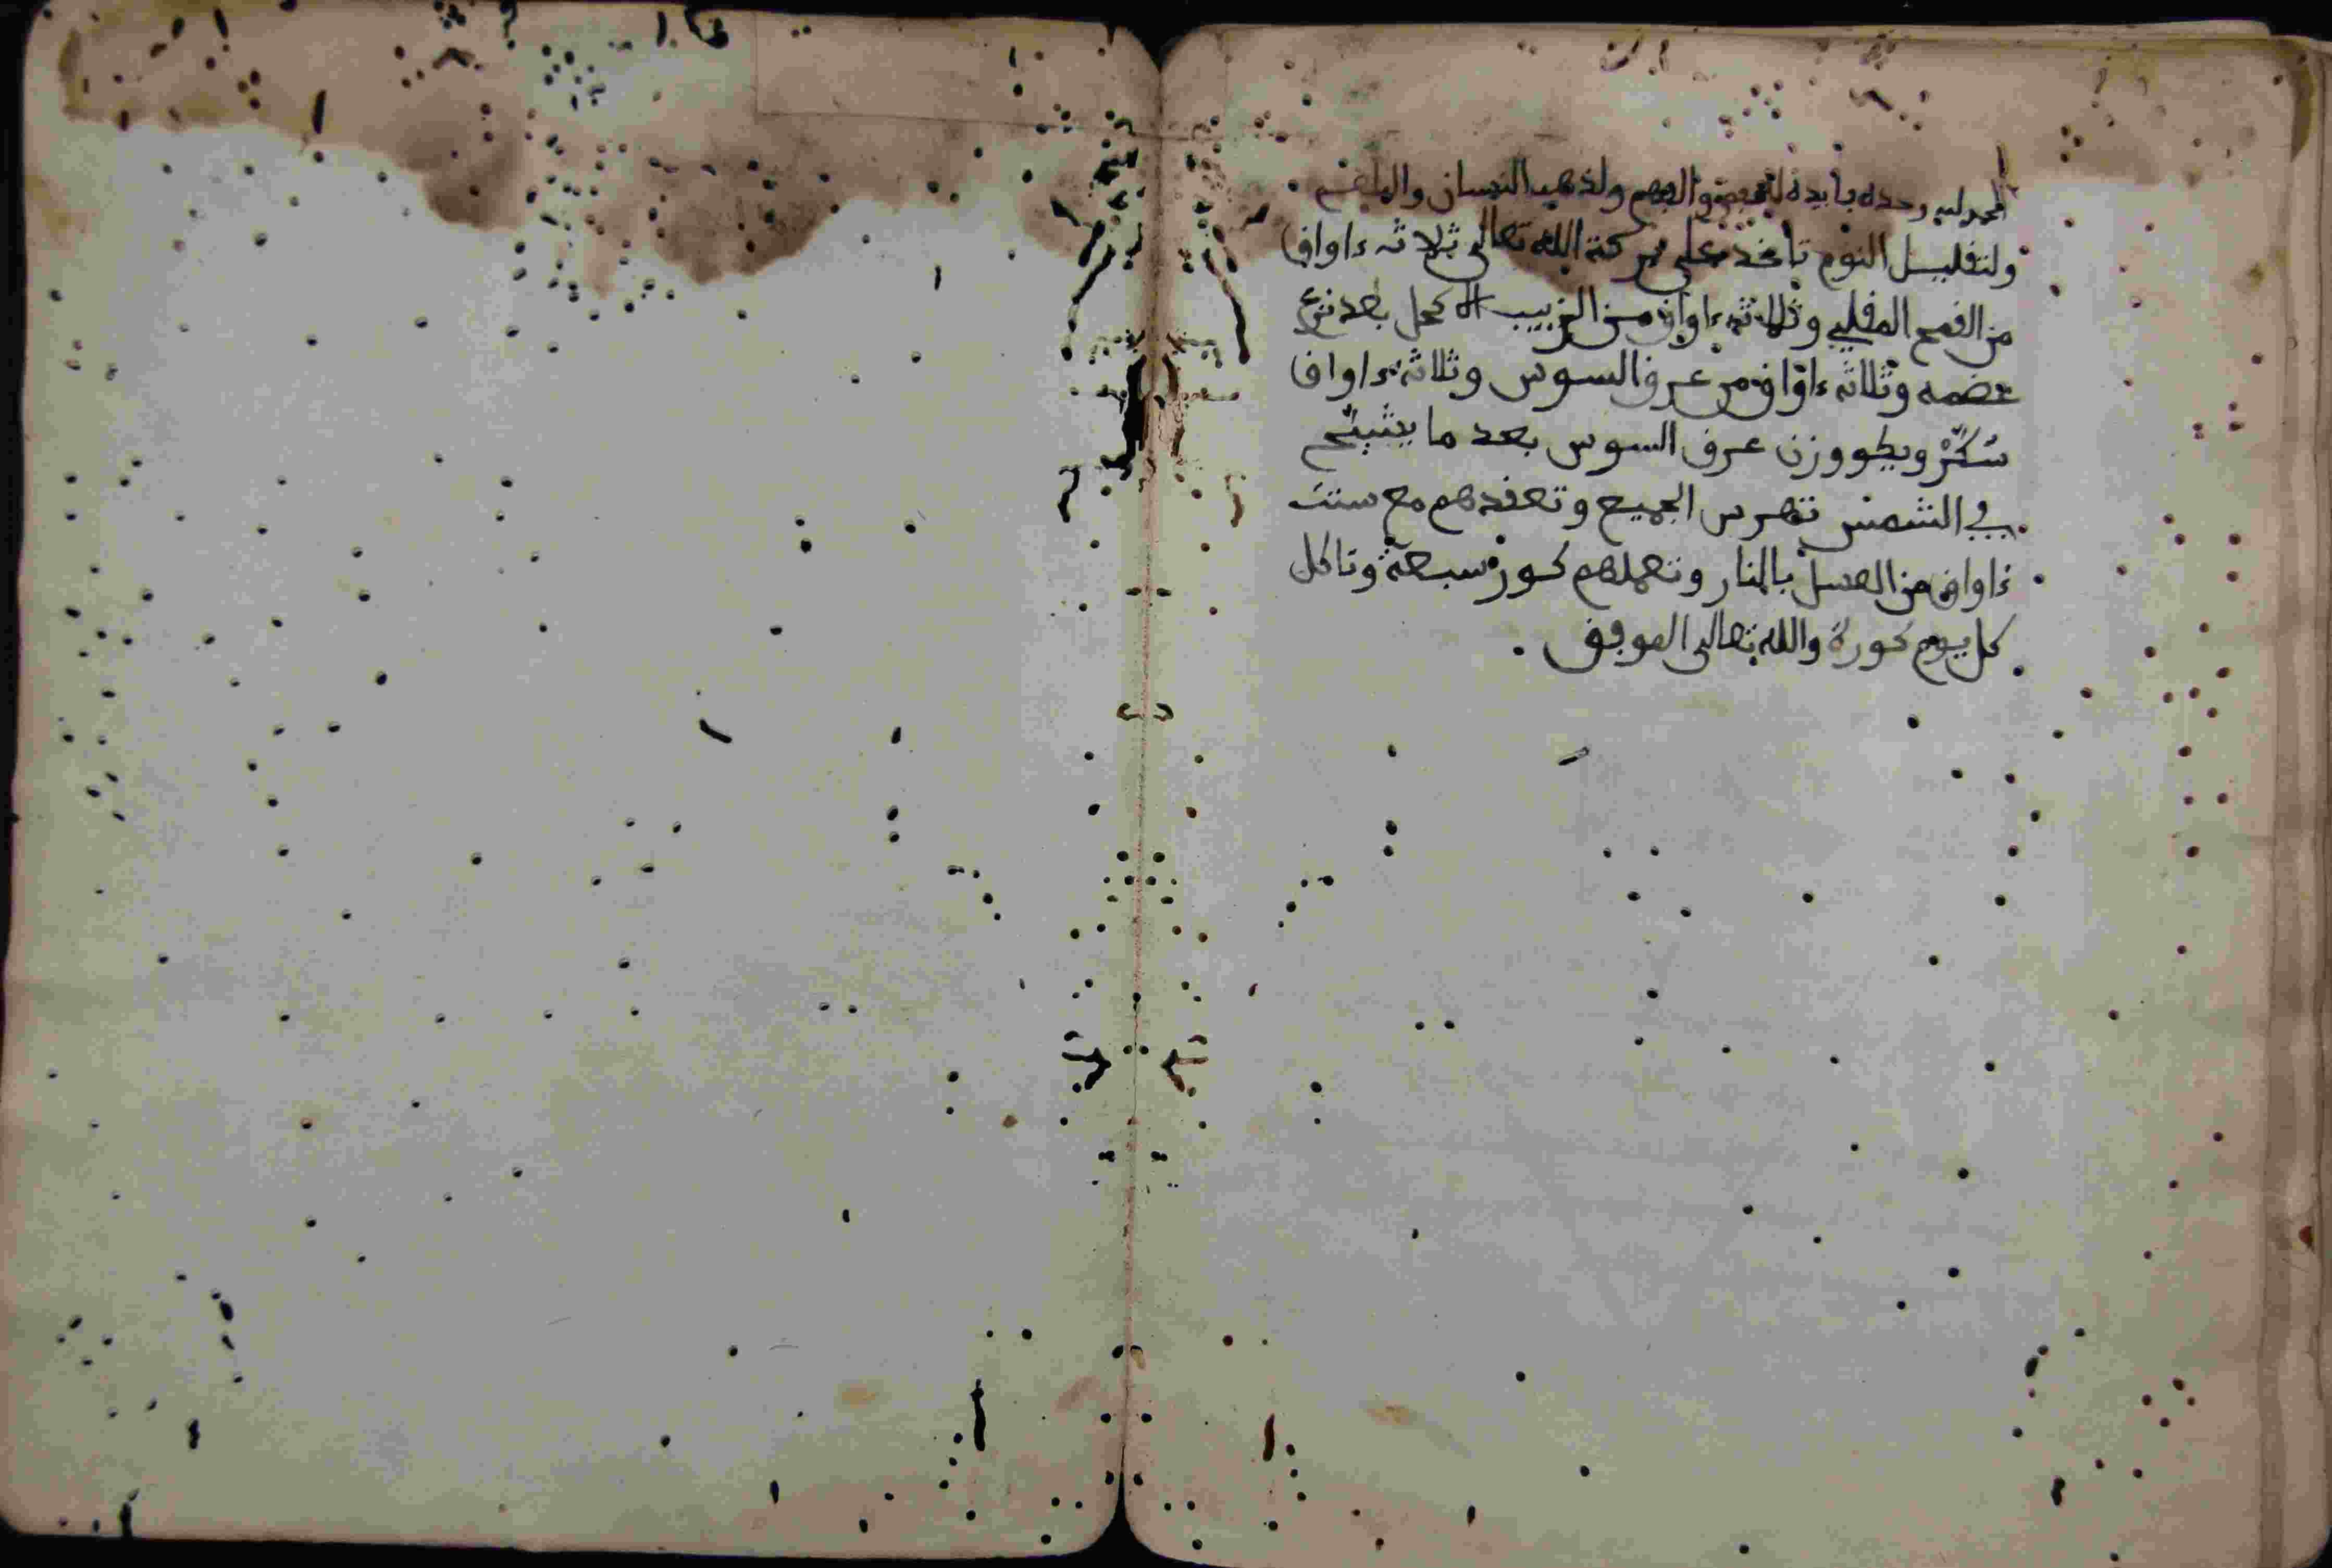 الحمد لله وحده بايدة للحفظ والفهم ولذهب النسيان والبلغم
ولتقليل النوم تاخذ على بركة الله تعالى ثلاثة ءاواق
من القمح المقلي وثلاثة ءاواق من الزبيب الاكحل بعد نزع
عضمه وثلاثة ءاواق من عرق السوس وثلاثة ءاواق
سُكّرْ ويكو وزن عرق السوس بعد ما
في الشمس تهرس الجميع وتعقدهم مع ستت
ءاواق من العسل بالنار وتعملهم كور سبعة وتاكل
كل يوم كورة والله تعالى الموفق